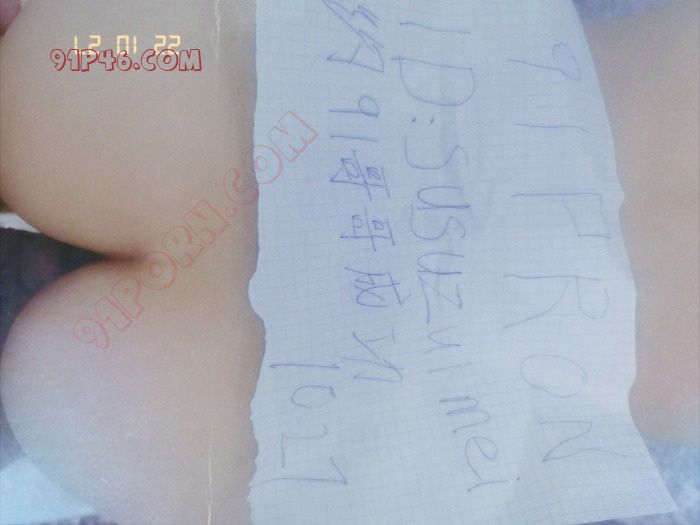 12 01 22
91P46.COM
91PORN.COM
91 PRON
ID:susuzuimei
91哥哥
1027